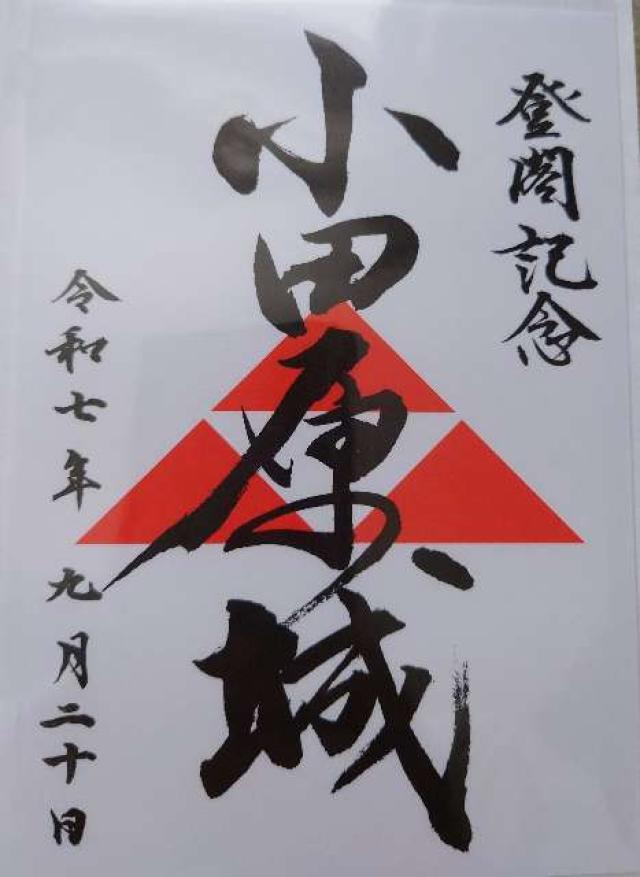 登閣記念
小田原城
令和七年 九月二十日